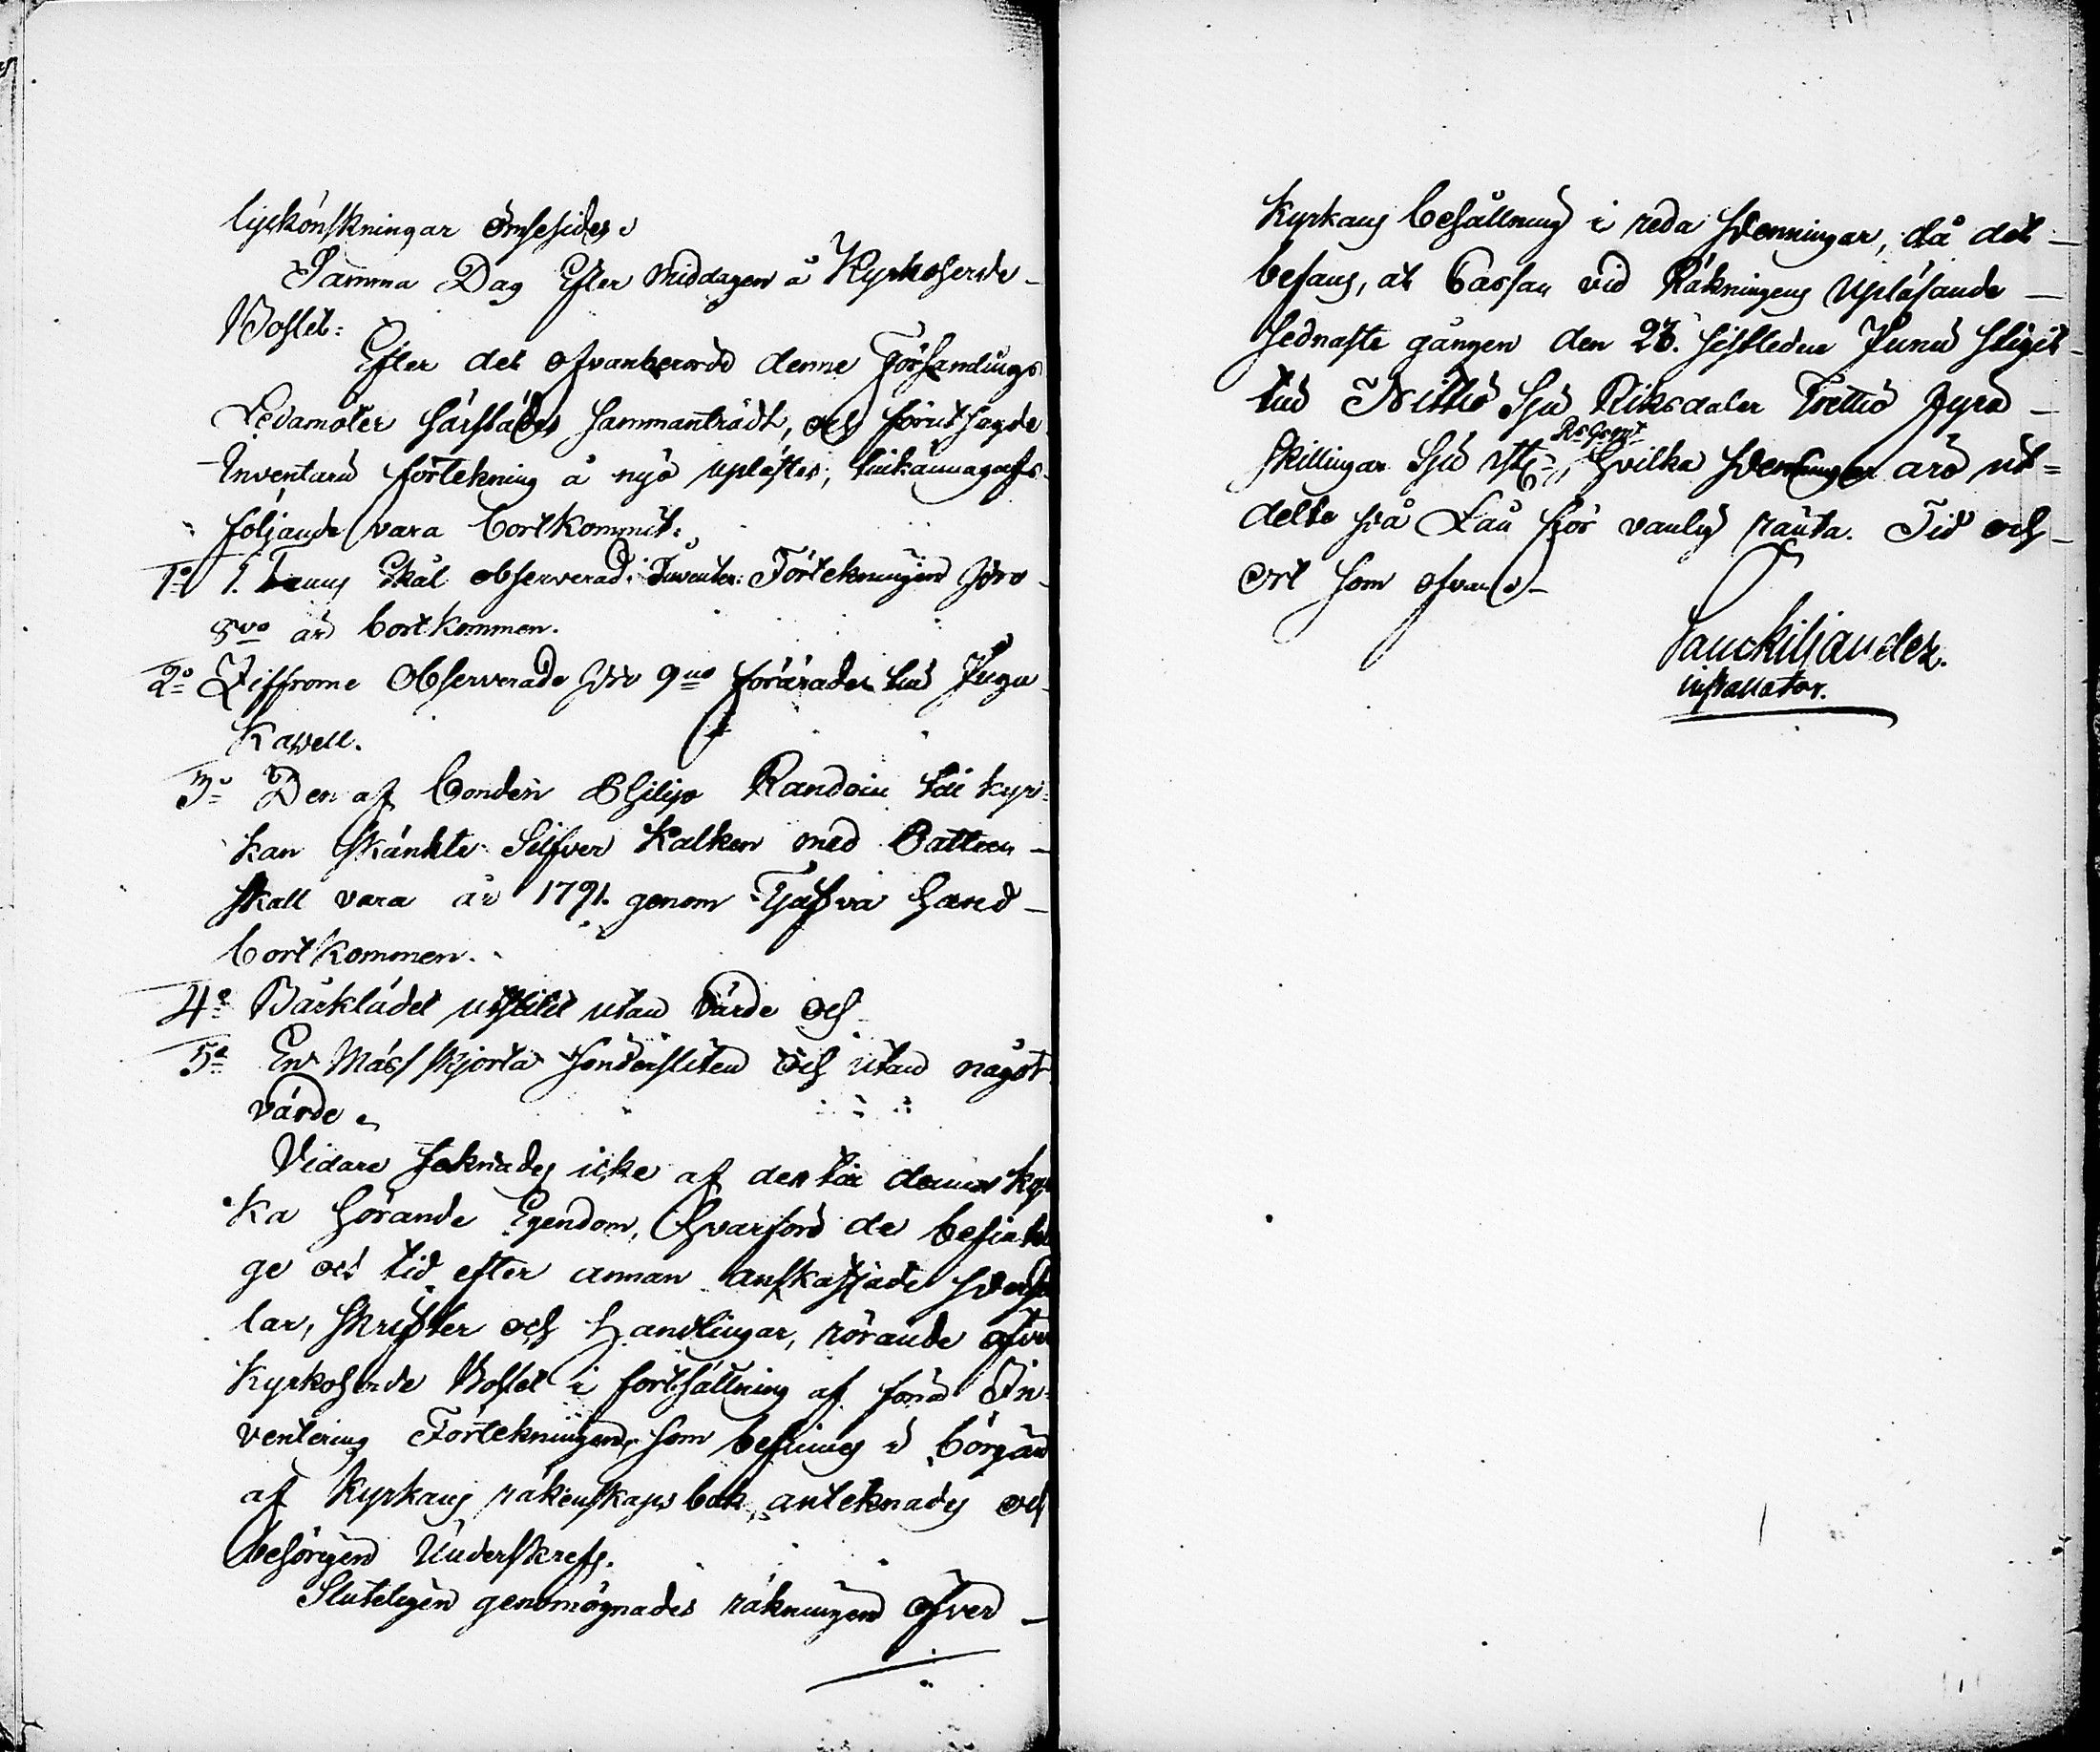 lyckönskningar ömsesides
Samma Dag Efter Middagen å Kyrkoherde-
Bostet:
Efter det ofvanberörde denne Förhandlings
Ledamöter härstädes sammanträdt, och förut sagde
Inventarii förtekning å nyo uplästes, tilkännagafs
följande vara bortkommit:
1o 1. Tenns Skål observerad i Inventar: Förtekningen Nro
8vo är bortkommen.
2o Ziffrorne Observerade Nro 9no förärades til
Kapell.
3o Den af bonden Philip til kyr=
kan skänkte Silfver Kalken med Patten
skall vara år 1791. genom Tjufva hand
bortkommen.
4o Bårklädet utslitit utan värde och
5o En Mässskjorta söndersliten och utan något
värde
Vidare saknades icke af den til denna kyr
ka hörande Egendom, Hvarföre de
ge och tid efter annan anskaffade
lar, skrifter och Handlingar, rörande
Kyrkoherde Bostet i fortsättning af förra In=
ventering Förtekningen, som befinnes i början
af Kyrkans räkenskaps bok, anteknades och
behörigen Underskrefs.
Sluteligen genomögnades räkningen öfver
Kyrkans behållning i reda penningar, då det
befans, at Cassan vid Räkningens Upläsande
sednaste gången den 23. sistledne Junii stigit
till Nittio Sju Riksdaler Trettio Fyra
Skillingar Sju
Rs Specit
hvilka penningar äro ut=
delte på Lån för vanlig ränta. Tid och
ort som ofvan
Lanckiljander.
installator.